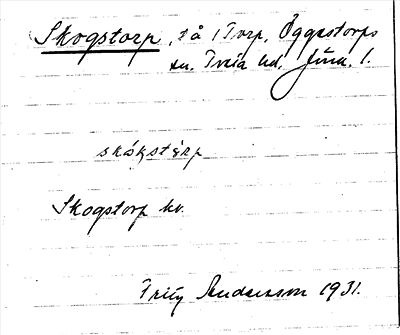 Skogstorp, tå i Torp, Öggestorps
sn. Tveta hd, Jönk. l.
skógstòrp
Skogstorp kv.
Fritz Andersson 1931.